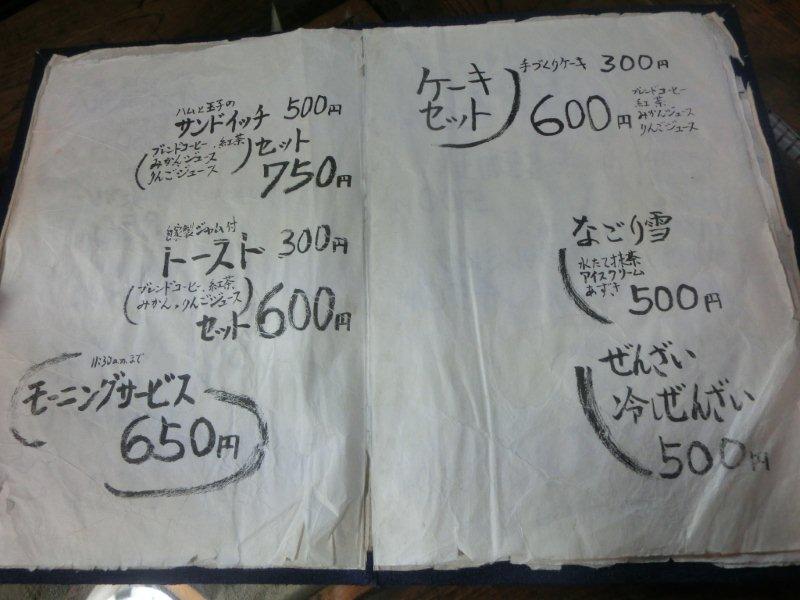 ハムと玉子の
サンドイッチ 500円
(ブレンドコーヒー、紅茶
みかんジュース
りんごジュース) セット
750円
自家製ジャム付
トースト 300円
(ブレンドコーヒー、紅茶
みかん、りんごジュース)
セット 600円
11:30a.m.まで
モーニングサービス
650円
ケーキ
セット
手づくりケーキ 300円
600円
ブレンドコーヒー
紅茶
みかんジュース
りんごジュース
なごり雪
水たて抹茶
アイスクリーム
あずき
500円
ぜんざい
冷しぜんざい
500円